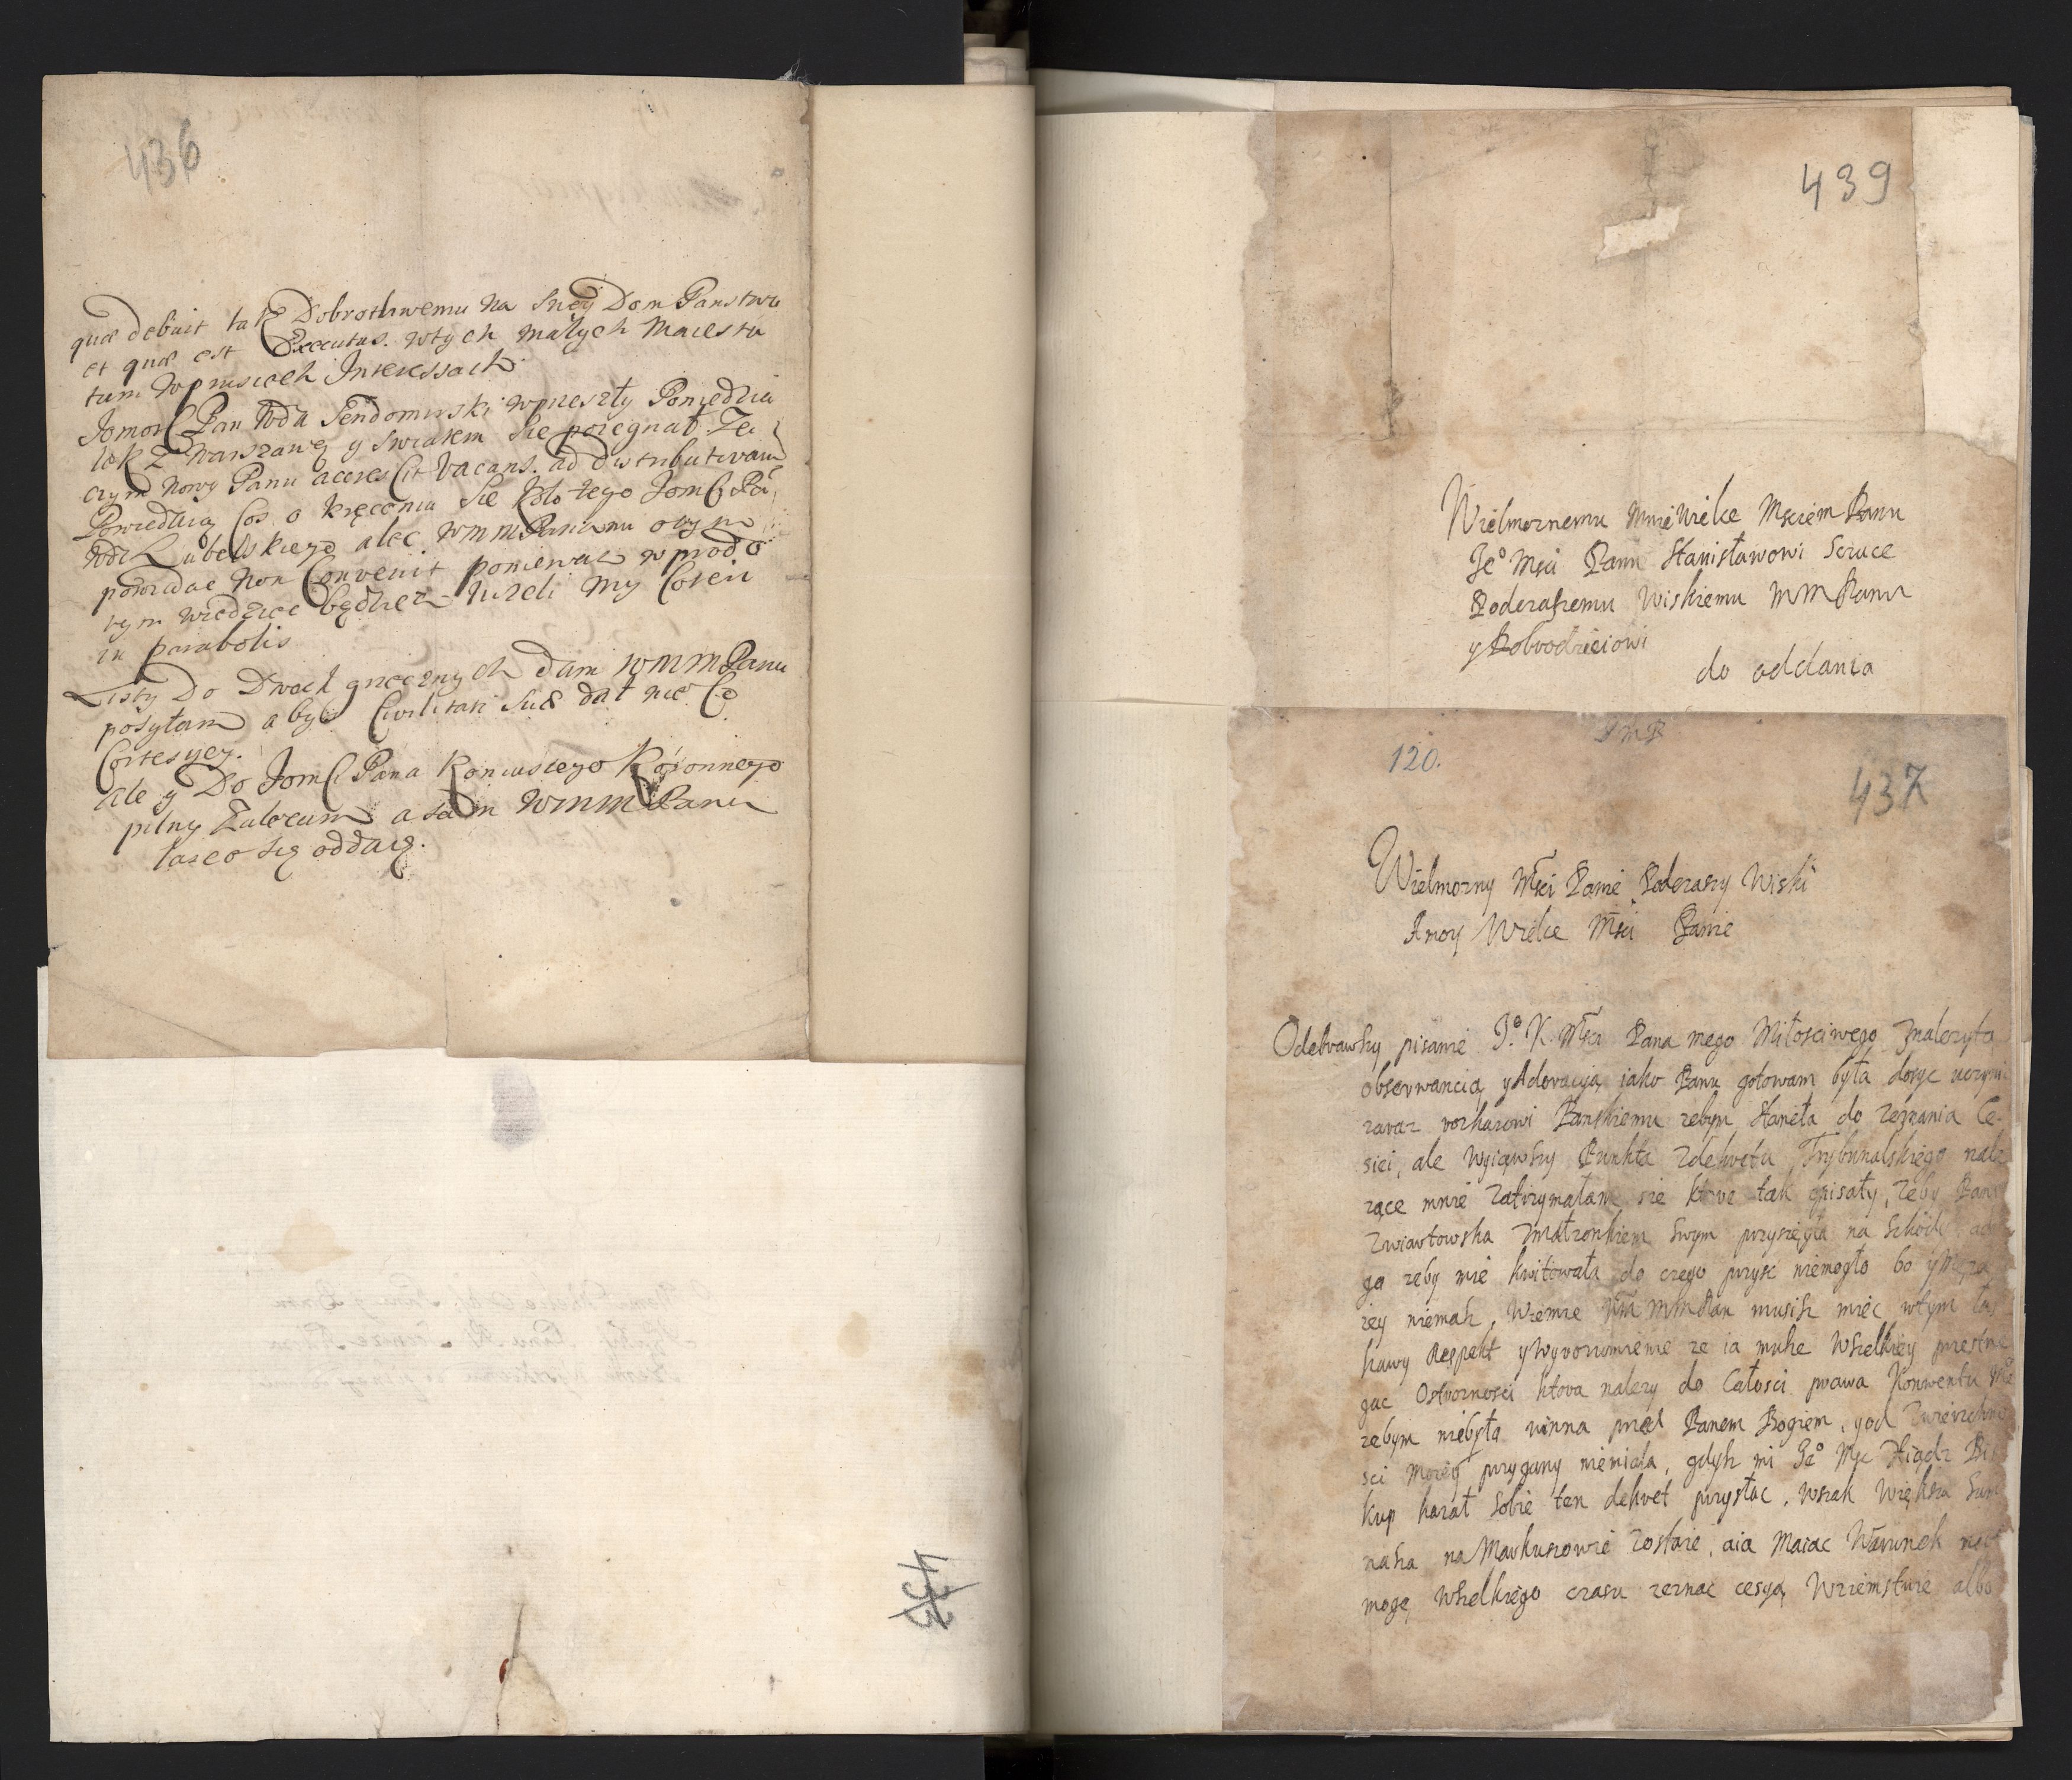 436
quæ debuit tak Dobrotliwemu na Iney Dom Panstwu
et quæ est Executas. wtych małych Maiesta
tum wpruskich Interessach
Jomosc Pan Woda Sendomirski wprzeszły Poniedzia
łek z Warszawą y swiatem sie pozegnał. Za
czym nowy Panu accrescit vacans. ad distributivam
Powiedaią cos o kręceniu sie koło tego Jomsci Pa
Wdz Lubelskiego alec WMMPanu o tym
powiedac non convenit poniewaz wprodo
tym wiedziec będziesz nizeli my Cosen
in parabolis
Listy do Dwoch grzecznych dam WMMPanu
posyłam aby Civilitati suæ dał
Cortesyey.
ale y Do Jomsci Pana Koniuszego Koronnego
pilny zalecam a sam WMMPanu
łasce się oddaię.
435
439
Wielmoznemu Mnie Wielce Msciem Panu
Je° Msci Panu Stanisławowi Szczuce
Podczaszemu Wiskiemu MMPanu
y Dobrodzieiowi
do oddania
120.
437
Wielmozny Msci Panie Podczaszy Wiski
A moy Wielce Msci Panie
Odebrawszy pisanie J° K Msci Pana mego Miłosciwego znalezyta
obserwancią y Adoracyią iako Panu gotowam była dosyc uczynic
zaraz rozkazowi Panskiemu zebym staneła do zeznania Ce-
siei, ale wyiąwszy Punkta zdekretu Trybunalskiego nale
zące mnie zatrzymałam sie ktore tak opisały, zeby Pani
Zwiartowska zmałzonkiem swym przysięgła na szkody
ga zeby mie kwitowała do czego przysc niemogło bo y
zey niemasz, Wiemze MMPan musisz miec wtym łas
kawy Respekt y wyrozumienie ze ia musze wszelkiey przestrze
gac Ostroznosci ktora nalezy do Całosci prawa Konwentu
zebym niebyła winna przed Panem Bogiem, y od zwierzchno
sci mozey przygany niemiała, gdysz mi Je° Msc Xiądz Bis
kup kazał sobie ten dekret przysłac, wszak większa sum
nasza na Markuszowie zostaie, aia Maiac Warunek
mogę wszelkiego czasu zeznac cesyą, wziemstwie albo